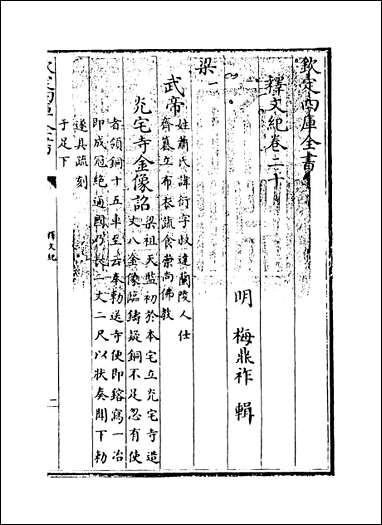 欽定四庫全書
釋文紀卷二十
明 梅鼎祚 輯
梁一
武帝
姓蕭氏諱衍字叔達蘭陵人仕
齊纂立布衣蔬食崇尚佛教
光宅寺金像詔
梁祖天監初於本宅立光宅寺造
丈八金像臨鑄疑銅不足忽有使
者領銅十五車至云奉勅送寺使即鎔寫一冶
即成冠絶通國乃長二丈二尺以狀奏聞下勅
遂具疏刻
于足下
欽定四庫全書
釋文紀